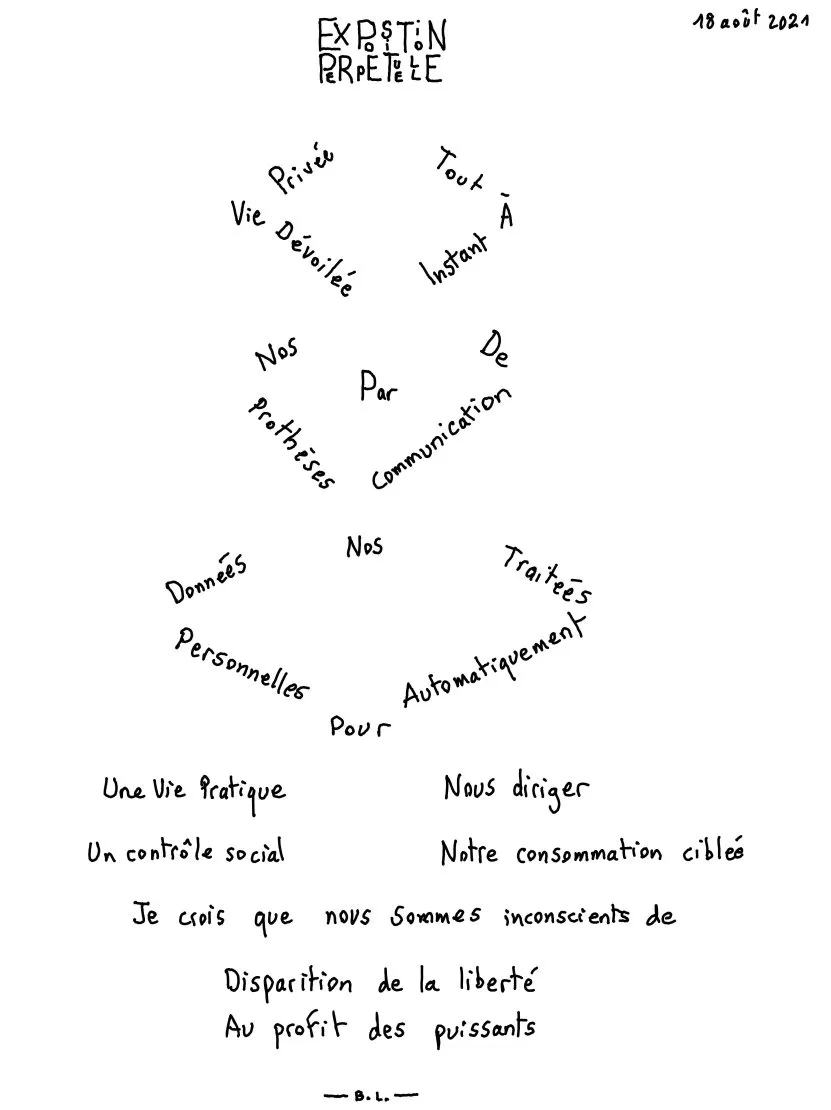 18 août 2021
EXPOSITION
PERPETUELLE
Privée
Vie Dévoilée
Tout
À
Instant
Nos
Prothèses
Par
De
Communication
Données
Personnelles
Nos
Traitées
Automatiquement
Pour
Une Vie Pratique
Nous diriger
Un contrôle social
Notre consommation ciblée
Je crois que nous sommes inconscients de
Disparition de la liberté
Au profit des puissants
— B.L. —